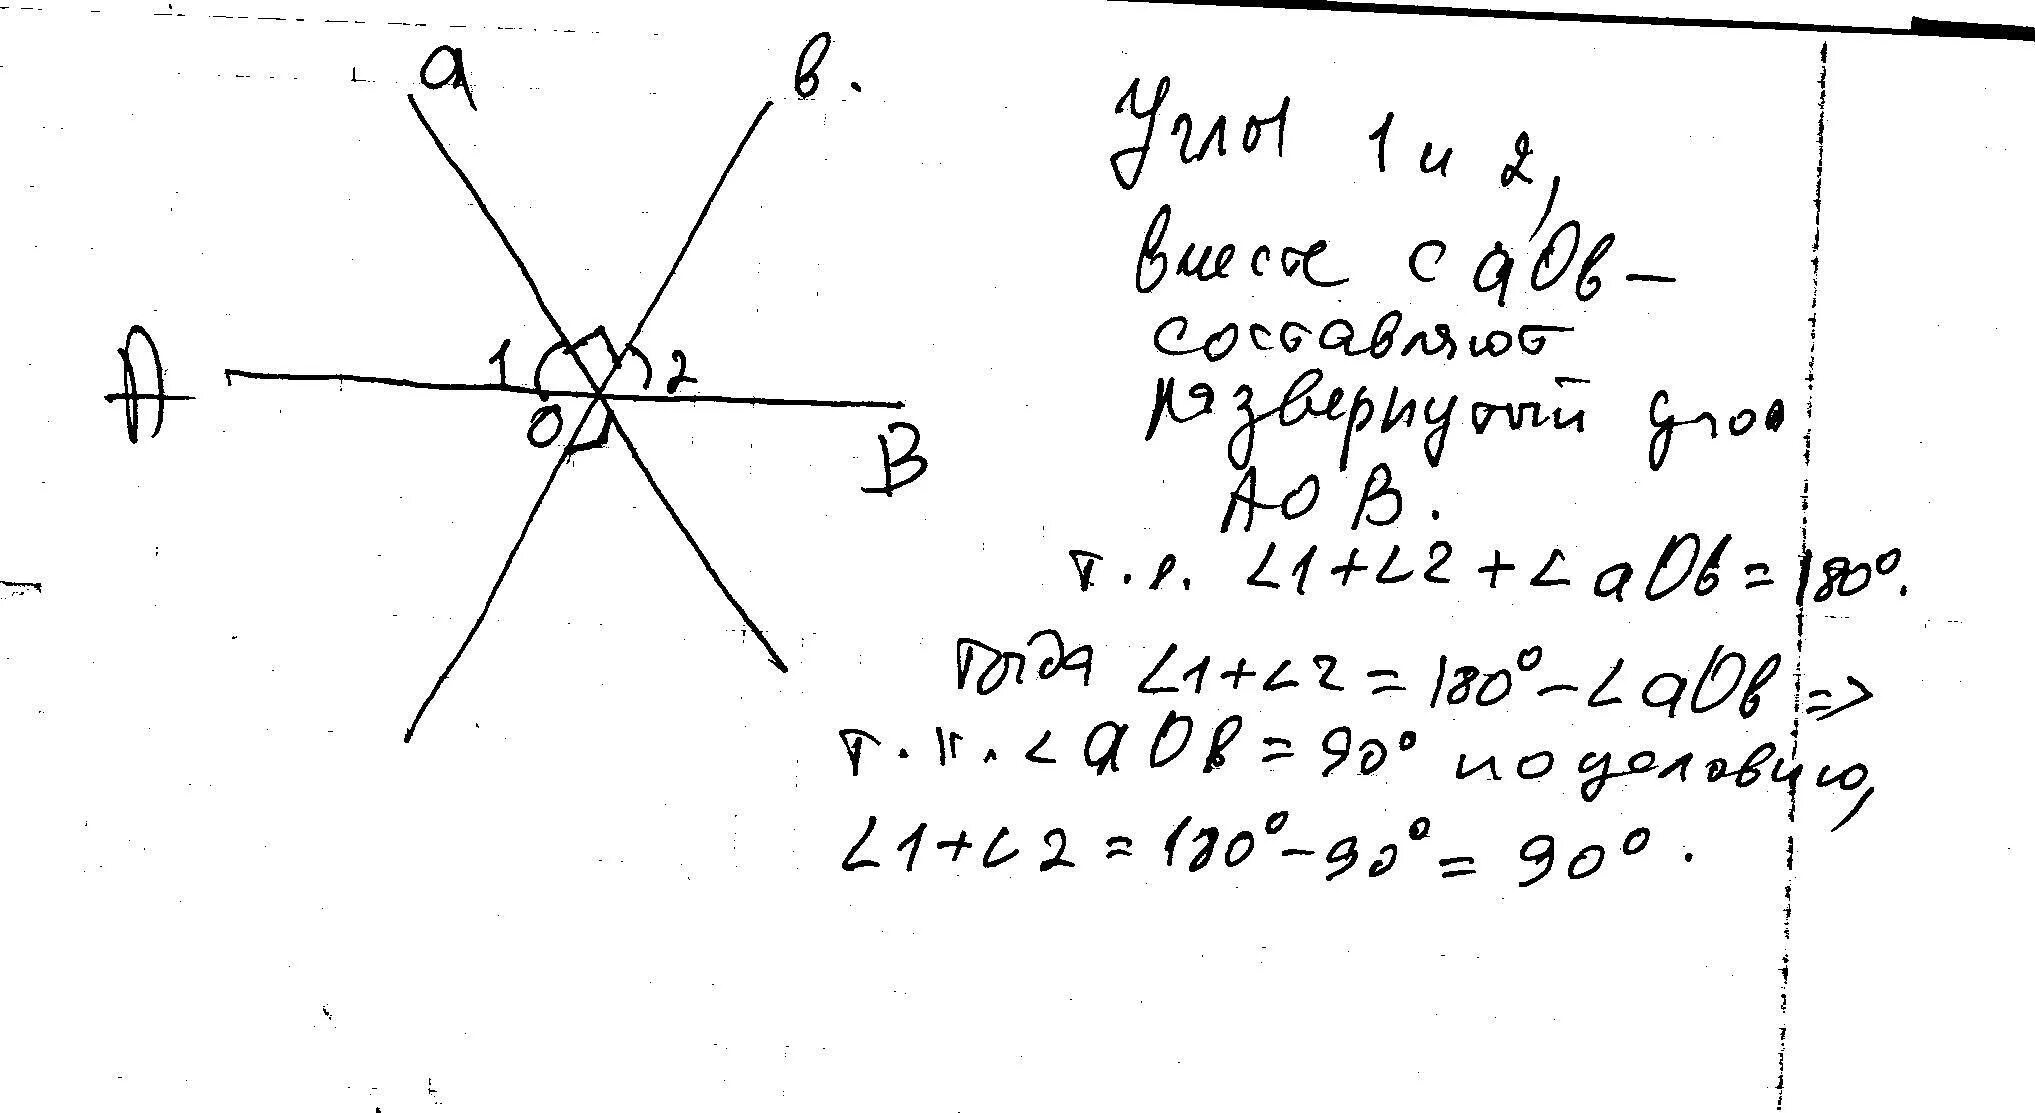 а
в.
1
2
А
О
В
Углы 1 и 2,
вместе с аОв –
составляют
развернутый угол
АОВ.
т.е. ∠1+∠2+∠аОв=180°.
тогда ∠1+∠2=180°-∠аОв =>
т.к. ∠аОв=90° по условию,
∠1+∠2=180°-90°=90°.